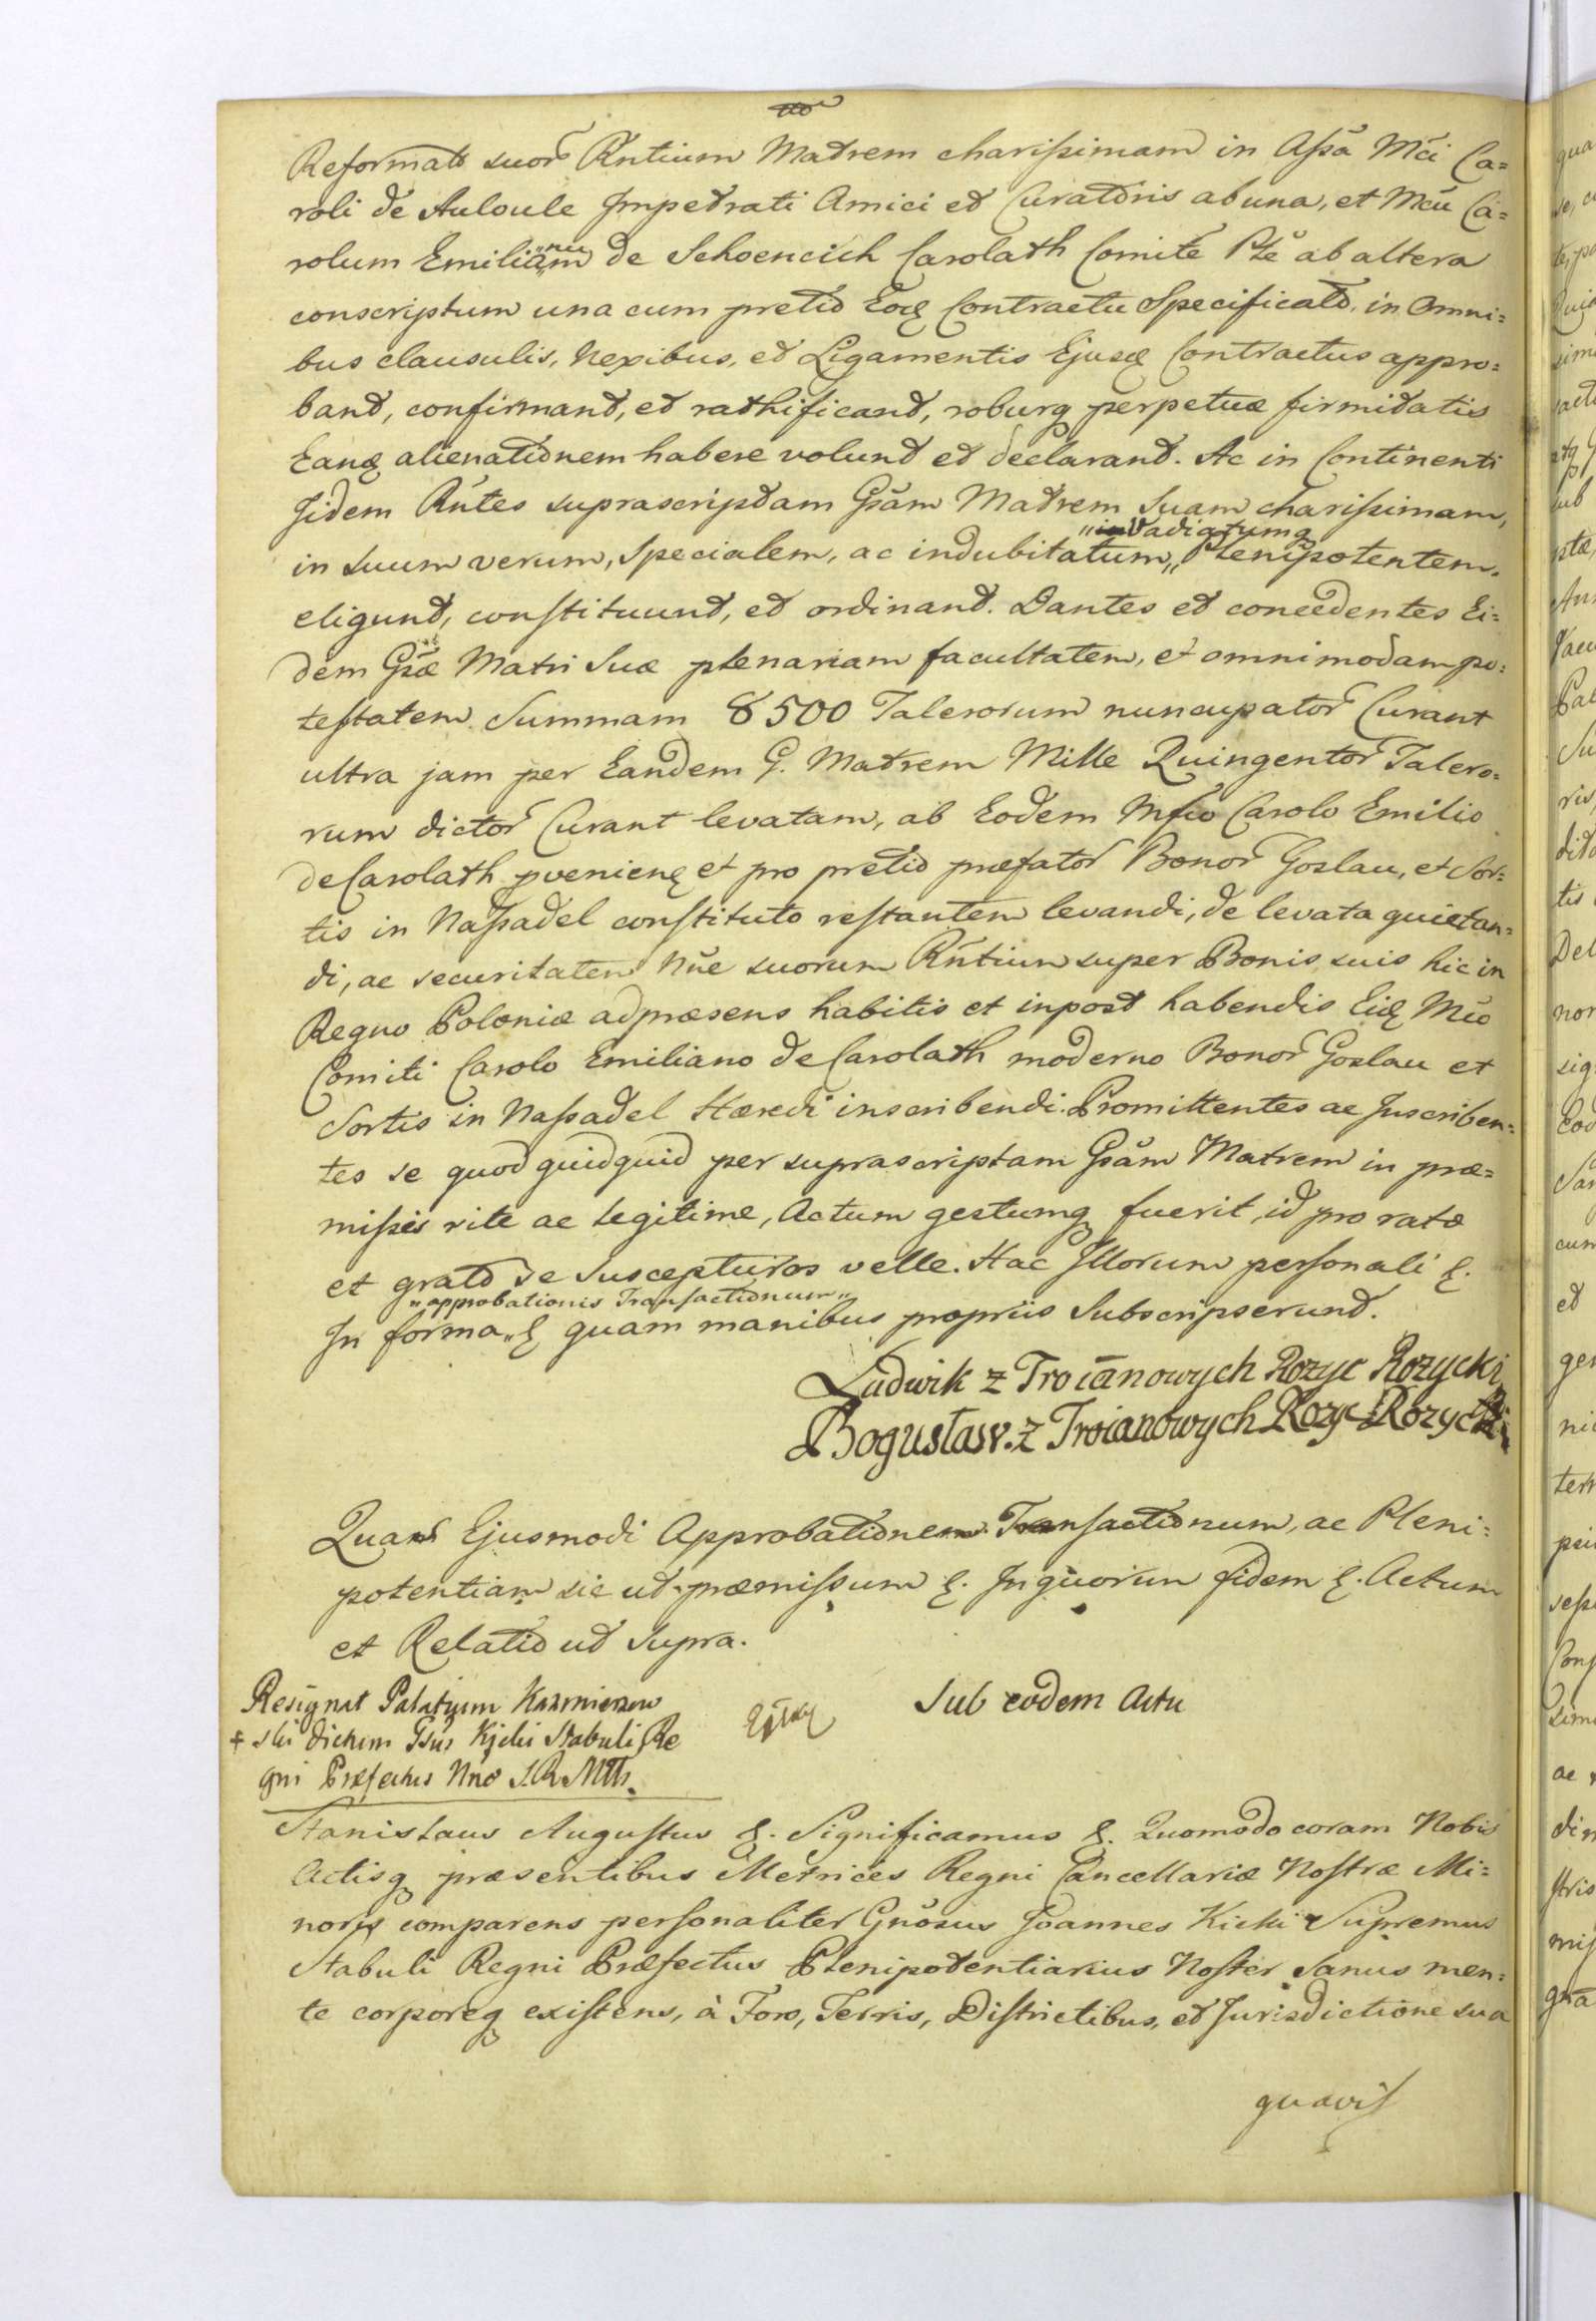 Reformatt suor Rntium Matrem charissimam in Assã Mci Ca=
roli de Auloule Impetrati Amici et Curatoris ab una, et Mcũ Ca=
rolum Emilianu de Schoencich Carolath Comite Pte ab altera
conscriptum una cum pretio Eoq Contractu Specificato, in Omni=
bus clausulis, Nexibus, et Ligamentis Ejusq Contractus appro=
bant, confirmant, et rathificant, roburq perpetuæ firmitatis
Eanq alienationem habere volunt et declarant. Ac in Continenti
Iidem Rntes suprascriptam Gsãm Matrem Suam charissimam,
in suum verum, Specialem, ac indubitatum, „Vadiatumq Plenipotentem,
eligunt, constituunt, et ordinant. Dantes et concedentes Ei=
dem Gsæ Matri Suæ plenariam facultatem, et omnimodam po=
testatem Summam 8500 Talerorum nuncupator Curant
ultra jam per Eandem G. Matrem Mille Quingentor Talero=
rum dictor Curant levatam, ab Eodem Mfco Carolo Emilio
de Carolath pvenienq et pro pretio præfator Bonor Goslau, et Sor=
tis in Nassadel constituto restantem levandi, de levata quietan=
di, ac securitatem Nñe suorum Rñtium super Bonis suis hic in
Regno Poloniæ ad præsens habitis et in post habendis Eiq Mco
Comiti Carolo Emiliano de Carolath moderno Bonor Goslau et
Sortis in Nassadel Hæredi inscribendi. Promittentes ac Inscriben=
tes se quod quidquid per suprascriptam Gsãm Matrem in præ=
missis rite ac legitime, Actum gestumq fuerit, id pro rato
et grato se Suscepturos velle. Hac Illorum personali &.
In forma „approbationis Transactionum„ & quam manibus propriis Subscripserunt.
Ludwik z Troianowych Rozyc Rozycki
Bogusław. z Troianowych Rozyc Rozycki
Quam Ejusmodi Approbationem Transactionum, ac Pleni=
potentiam sic ut præmissum &. In quorum fidem &. Actum
et Relatio ut Supra.
Resignat Palatyum Kazmierzow
+ ski dictum Gsus Kicki Stabuli Re
gni Præfectus Nno S. R. Mtti.
Sub eodem Actu
Stanislaus Augustus &. Significamus &. Quomodo coram Nobis
Actisq præsentibus Metrices Regni Cancellariæ Nostræ Mi=
noris comparens personaliter Gnosus Joannes Kicki Supremus
Stabuli Regni Præfectus Plenipotentiarius Noster Sanus men=
te corporeq existens, à Foro, Terris, Districtibus, et Jurisdictione sua
quavis